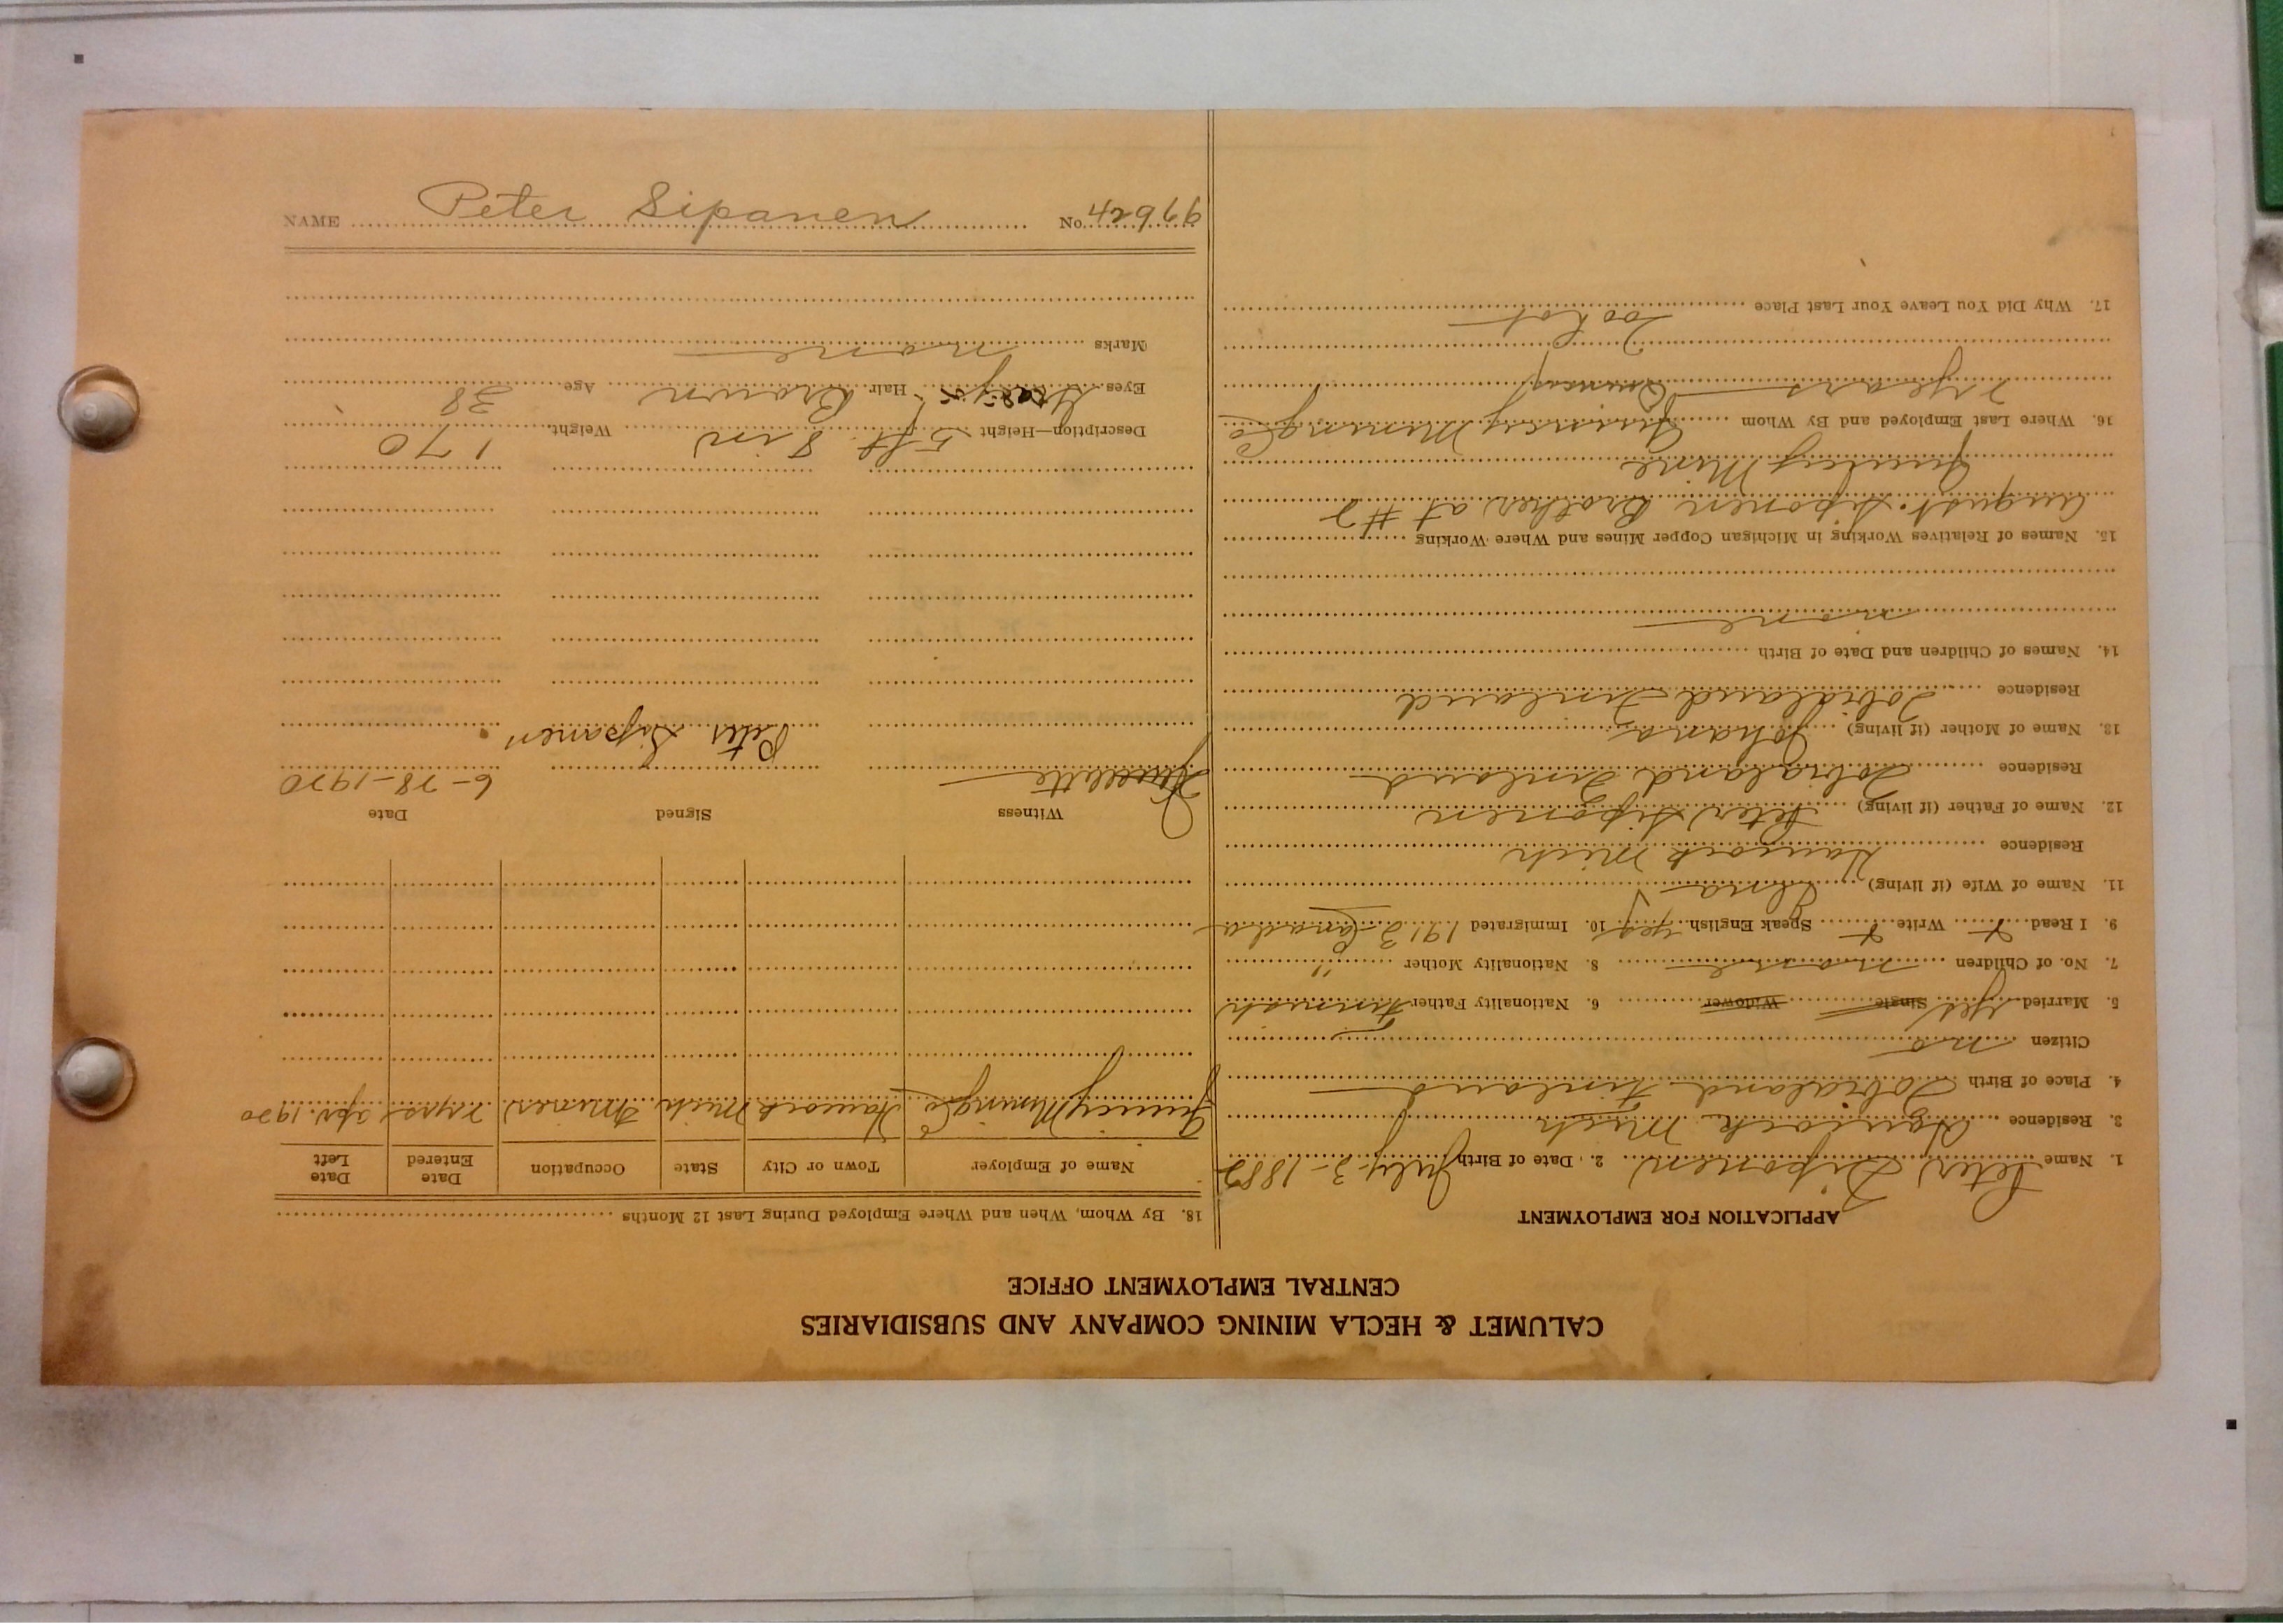 CALUMET & HECLA MINING COMPANY AND SUBSIDIARIES
CENTRAL EMPLOYMENT OFFICE
APPLICATION FOR EMPLOYMENT
1. Name Peter Siponen 2. Date of Birth July-3-1882
3. Residence Hancock Mich
4. Place of Birth Finland
Citizen no
5. Married yes Single Widower 6. Nationality Father Finnish
7. No. of Children none 8. Nationality Mother "
9. I Read x Write x Speak English yes 10. Immigrated 1912 Canada
11. Name of Wife (if living)
Residence Hancock Mich
12. Name of Father (if living) Peter Siponen
Residence Finland
13. Name of Mother (if living) Johana
Residence Finland
14. Names of Children and Date of Birth
none
15. Names of Relatives Working in Michigan Copper Mines and Where Working
August Siponen Brother at #2
Quincy Mine
16. Where Last Employed and By Whom Quincy Mining Co
2 years Quincy
17. Why Did You Leave Your Last Place
Too hot
18. By Whom, When and Where Employed During Last 12 Months
Name of Employer Town or City State Occupation Date Entered Date Left
Quincy Mining Co Hancock Mich 2 yrs Apr. 1920
Witness Signed Date
6-28-1920
Peter Sipanen
Description—Height 5 ft 8 in Weight 170
Eyes Grays Hair Brown Age 38
Marks none
NAME Peter Sipanen No. 42979